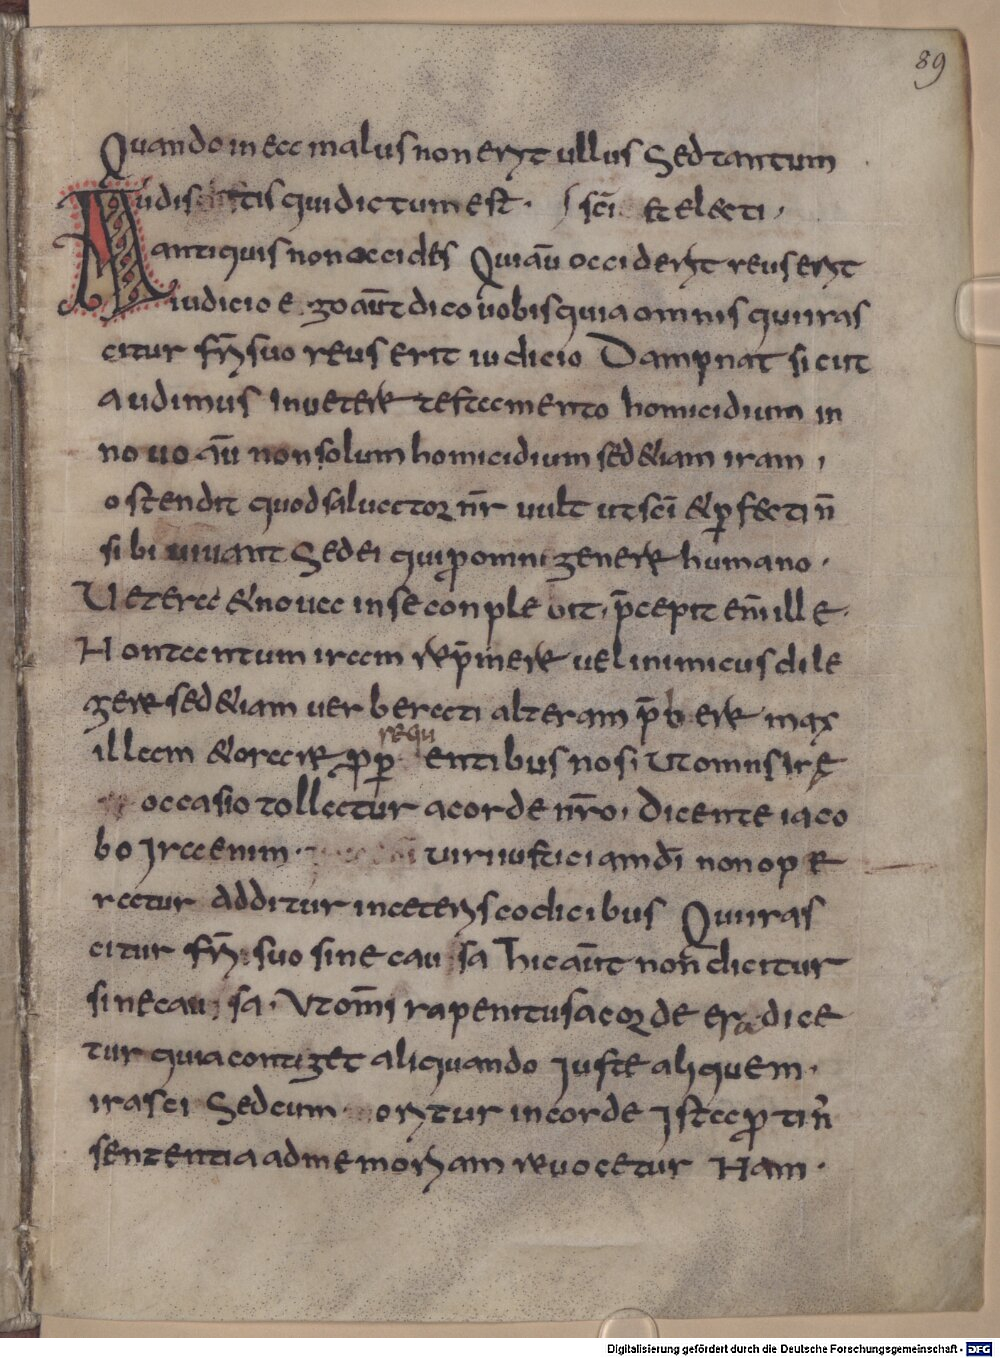 89
Quando in ecc malus non erit ullus Sed tantum
Audistis qui dictum est · sc̄i et electi ·
antiquis non occides Qui aū occiderit reus erit
iudicio ego aūt dico uobis quia omnis qui iras
citur fr̄i suo reus erit iudicio Dampnat sicut
audimus In uetere testamento homicidium in
nouo aū non solum homicidium sed &iam iram ,
ostendit quod saluator nr̄ uult ut sc̄i & ꝑfecti n̄
sibi uiuant Sed ei qui pro omni genere humano ·
Uetera & noua in se conpleuit · p̄cepit en̄ ille ·
Non tantum iram rep̄mere uel inimicus dile
gere sed &iam uerberati alteram p̄bere max
illam & orare ꝓ ꝑsequentibus nos · Ut omnis irę
occasio tollatur a corde nr̄o · Dicente iaco
bo Ira enim · uiri iusticiam dī non ope
ratur Additur in ceteris codicibus Qui iras
citur fr̄i suo sine causa hic aūt non dicitur
sine causa · Ut om̄i ira penitus a corde era dice
tur quia contiget aliquando Iuste aliquem ·
irasci Sed cum oritur in corde Ista ꝓtin̄
sententia ad memoriam reuocetur Nam ·
Digitalisierung gefördert durch die Deutsche Forschungsgemeinschaft - DFG